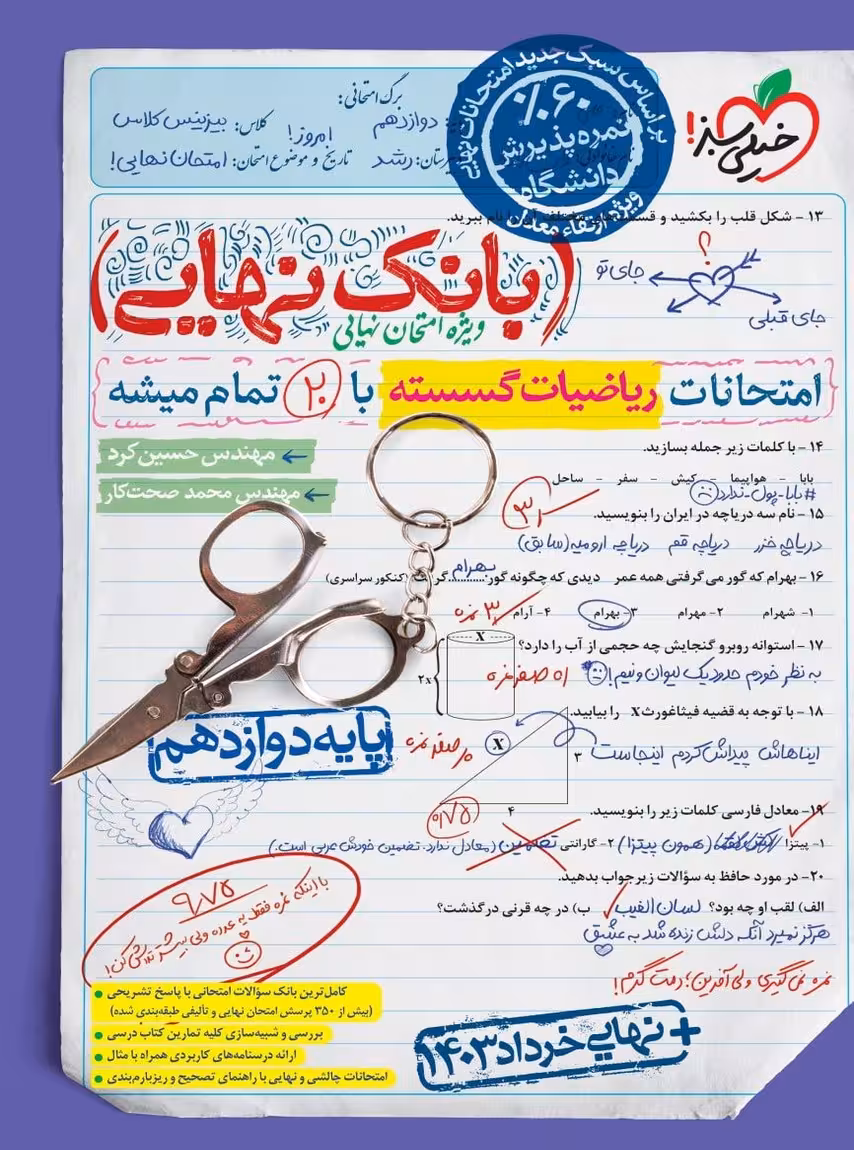 خیلی سبز!
براساس سبک جدید امتحانات نهایی
۶۰٪
نمره پذیرش
دانشگاه
ویژه ارتقاء معدل
برگ امتحانی:
دوازدهم کلاس: بیزینس کلاس
دبیرستان: رشد تاریخ و موضوع امتحان: امروز! امتحان نهایی!
۱۳ - شکل قلب را بکشید و قسمت‌های مختلف آن را نام ببرید.
؟
جای تو
جای قبلی
(بانک نهایی)
ویژه امتحان نهایی
امتحانات ریاضیات گسسته با ۲۰ تمام میشه
مهندس حسین کرد
مهندس محمد صحت‌کار
۱۴ - با کلمات زیر جمله بسازید.
بابا - هواپیما - کیش - سفر - ساحل
#بابا-پول-ندارد
۱۵ - نام سه دریاچه در ایران را بنویسید.
دریاچه خزر دریاچه قم دریاچه ارومیه (سابق)
۱۶ - بهرام که گور می گرفتی همه عمر دیدی که چگونه گور بهرام گرفت (کنکور سراسری)
۱- شهرام ۲- مهرام ۳- بهرام ۴- آرام
۱۷ - استوانه روبرو گنجایش چه حجمی از آب را دارد؟
X
۲x
به نظر خودم حدود یک لیوان و نیم!
۱۸ - با توجه به قضیه فیثاغورث X را بیابید.
X
۳
۴
ایناهاش پیداش کردم اینجاست
پایه دوازدهم
۱۹- معادل فارسی کلمات زیر را بنویسید.
۰/۷۵
۱- پیتزا (همون پیتزا) ۲- گارانتی تضمین (معادل ندارد. تضمین خودش عربی است.)
۲۰- در مورد حافظ به سؤالات زیر جواب بدهید.
الف) لقب او چه بود؟ لسان الغیب ب) در چه قرنی درگذشت؟
هرگز نمیرد آنکه دلش زنده شد به عشق
نمره نمی‌گیری ولی آفرین؛ دمت گرم!
۹/۷۵
با اینکه نمره فقط یه عدده ولی بیشتر تلاش کن!
کامل‌ترین بانک سؤالات امتحانی با پاسخ تشریحی
(بیش از ۳۵۰ پرسش امتحان نهایی و تألیفی طبقه‌بندی شده)
بررسی و شبیه‌سازی کلیه تمارین کتاب درسی
ارائه درسنامه‌های کاربردی همراه با مثال
امتحانات چالشی و نهایی با راهنمای تصحیح و ریزبارم‌بندی
+ نهایی خرداد ۱۴۰۳